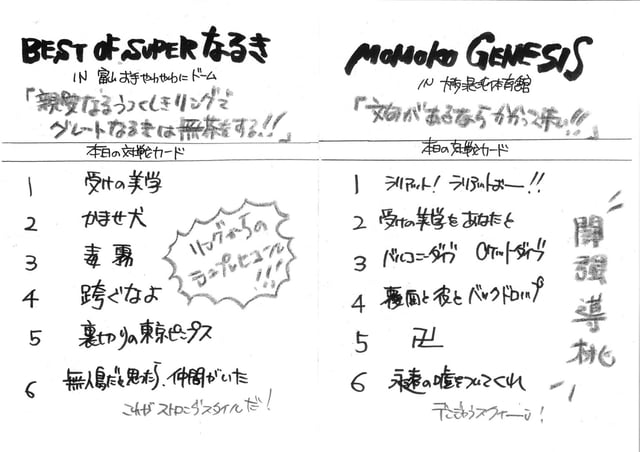 BEST OF SUPER なるき
IN 富山おきゃわやわにドーム
「親愛なるうつくしきリングで
グレートなるきは無茶をする!!」
本日の対戦カード
1 受けの美学
2 かませ犬
3 毒霧
4 跨ぐなよ
5 裏切りの東京ピープス
6 無人島だと思ったら、仲間がいた
これがストロングスタイルだ!
リングからの
シュプレヒコール
!!!
MOMOKO GENESIS
IN 体育館
「文句があるならかかって来い!!」
本日の対戦カード
1 ラリアット! ラリアットぉー!!
2 受けの美学をあなたと
3 バルコニーダイブ ロケットダイブ
4 覆面と彼とバックドロップ
5 卍
6 永遠の嘘をついてくれ
開
強
導
桃